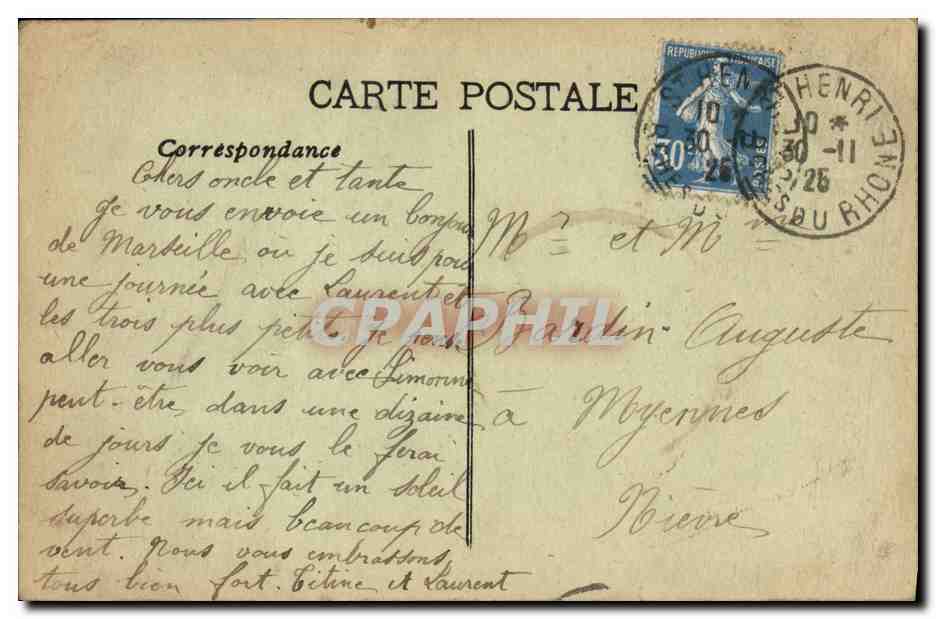 CARTE POSTALE
Correspondance
Chers oncle et tante
Je vous envoie un bonjour
de Marseille où je suis pour
une journée avec Laurent et
les trois plus petits. Je pense
aller vous voir avec Simonne
peut-être, dans une dizaine
de jours je vous le ferai
savoir. Ici il fait un soleil
superbe mais beaucoup de
vent. Nous vous embrassons
tous bien fort. Titine et Laurent
REPUBLIQUE FRANÇAISE
30
POSTES
ST HENRI
10
30
26
HENRI
10 *
30 -11
26
DU RHONE
Mr et Mme
Bardin Auguste
à Myennes
Nièvre
CRAPHIL